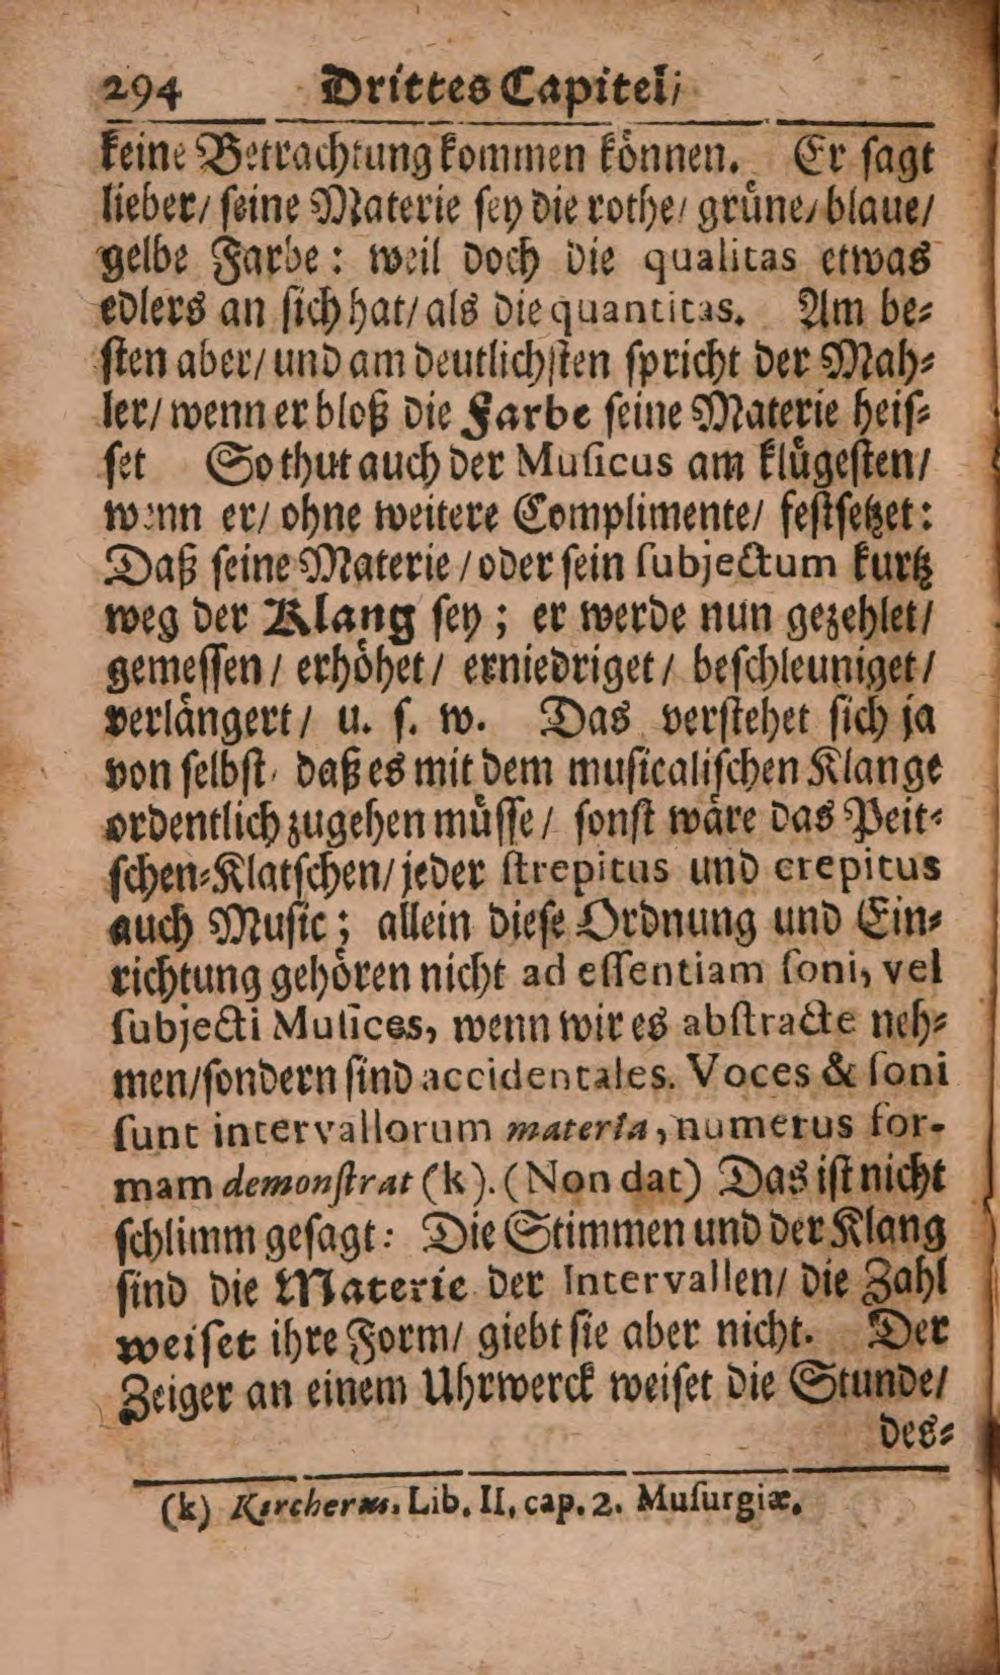 294 Drittes Capitel/
keine Betrachtung kommen können. Er sagt
lieber/ seine Materie sey die rothe/ grüne/ blaue/
gelbe Farbe: weil doch die qualitas etwas
edlers an sich hat/ als die quantitas. Am be-
sten aber/ und am deutlichsten spricht der Mah-
ler/ wenn er bloß die Farbe seine Materie heis-
set So thut auch der Musicus am klügesten/
wenn er/ ohne weitere Complimente/ festsetzet:
Daß seine Materie / oder sein subjectum kurtz
weg der Klang sey; er werde nun gezehlet/
gemessen / erhöhet / erniedriget / beschleuniget /
verlängert / u. s. w. Das verstehet sich ja
von selbst, daß es mit dem musicalischen Klange
ordentlich zugehen müsse / sonst wäre das Peit-
schen-Klatschen/ jeder strepitus und crepitus
auch Music; allein diese Ordnung und Ein-
richtung gehören nicht ad essentiam soni, vel
subjecti Musices, wenn wir es abstracte neh-
men/ sondern sind accidentales. Voces & soni
sunt intervallorum materia, numerus for-
mam demonstrat (k). (Non dat) Das ist nicht
schlimm gesagt: Die Stimmen und der Klang
sind die Materie der Intervallen/ die Zahl
weiset ihre Form/ giebt sie aber nicht. Der
Zeiger an einem Uhrwerck weiset die Stunde/
des-
(k) Kircherus. Lib. II. cap. 2. Musurgiæ.